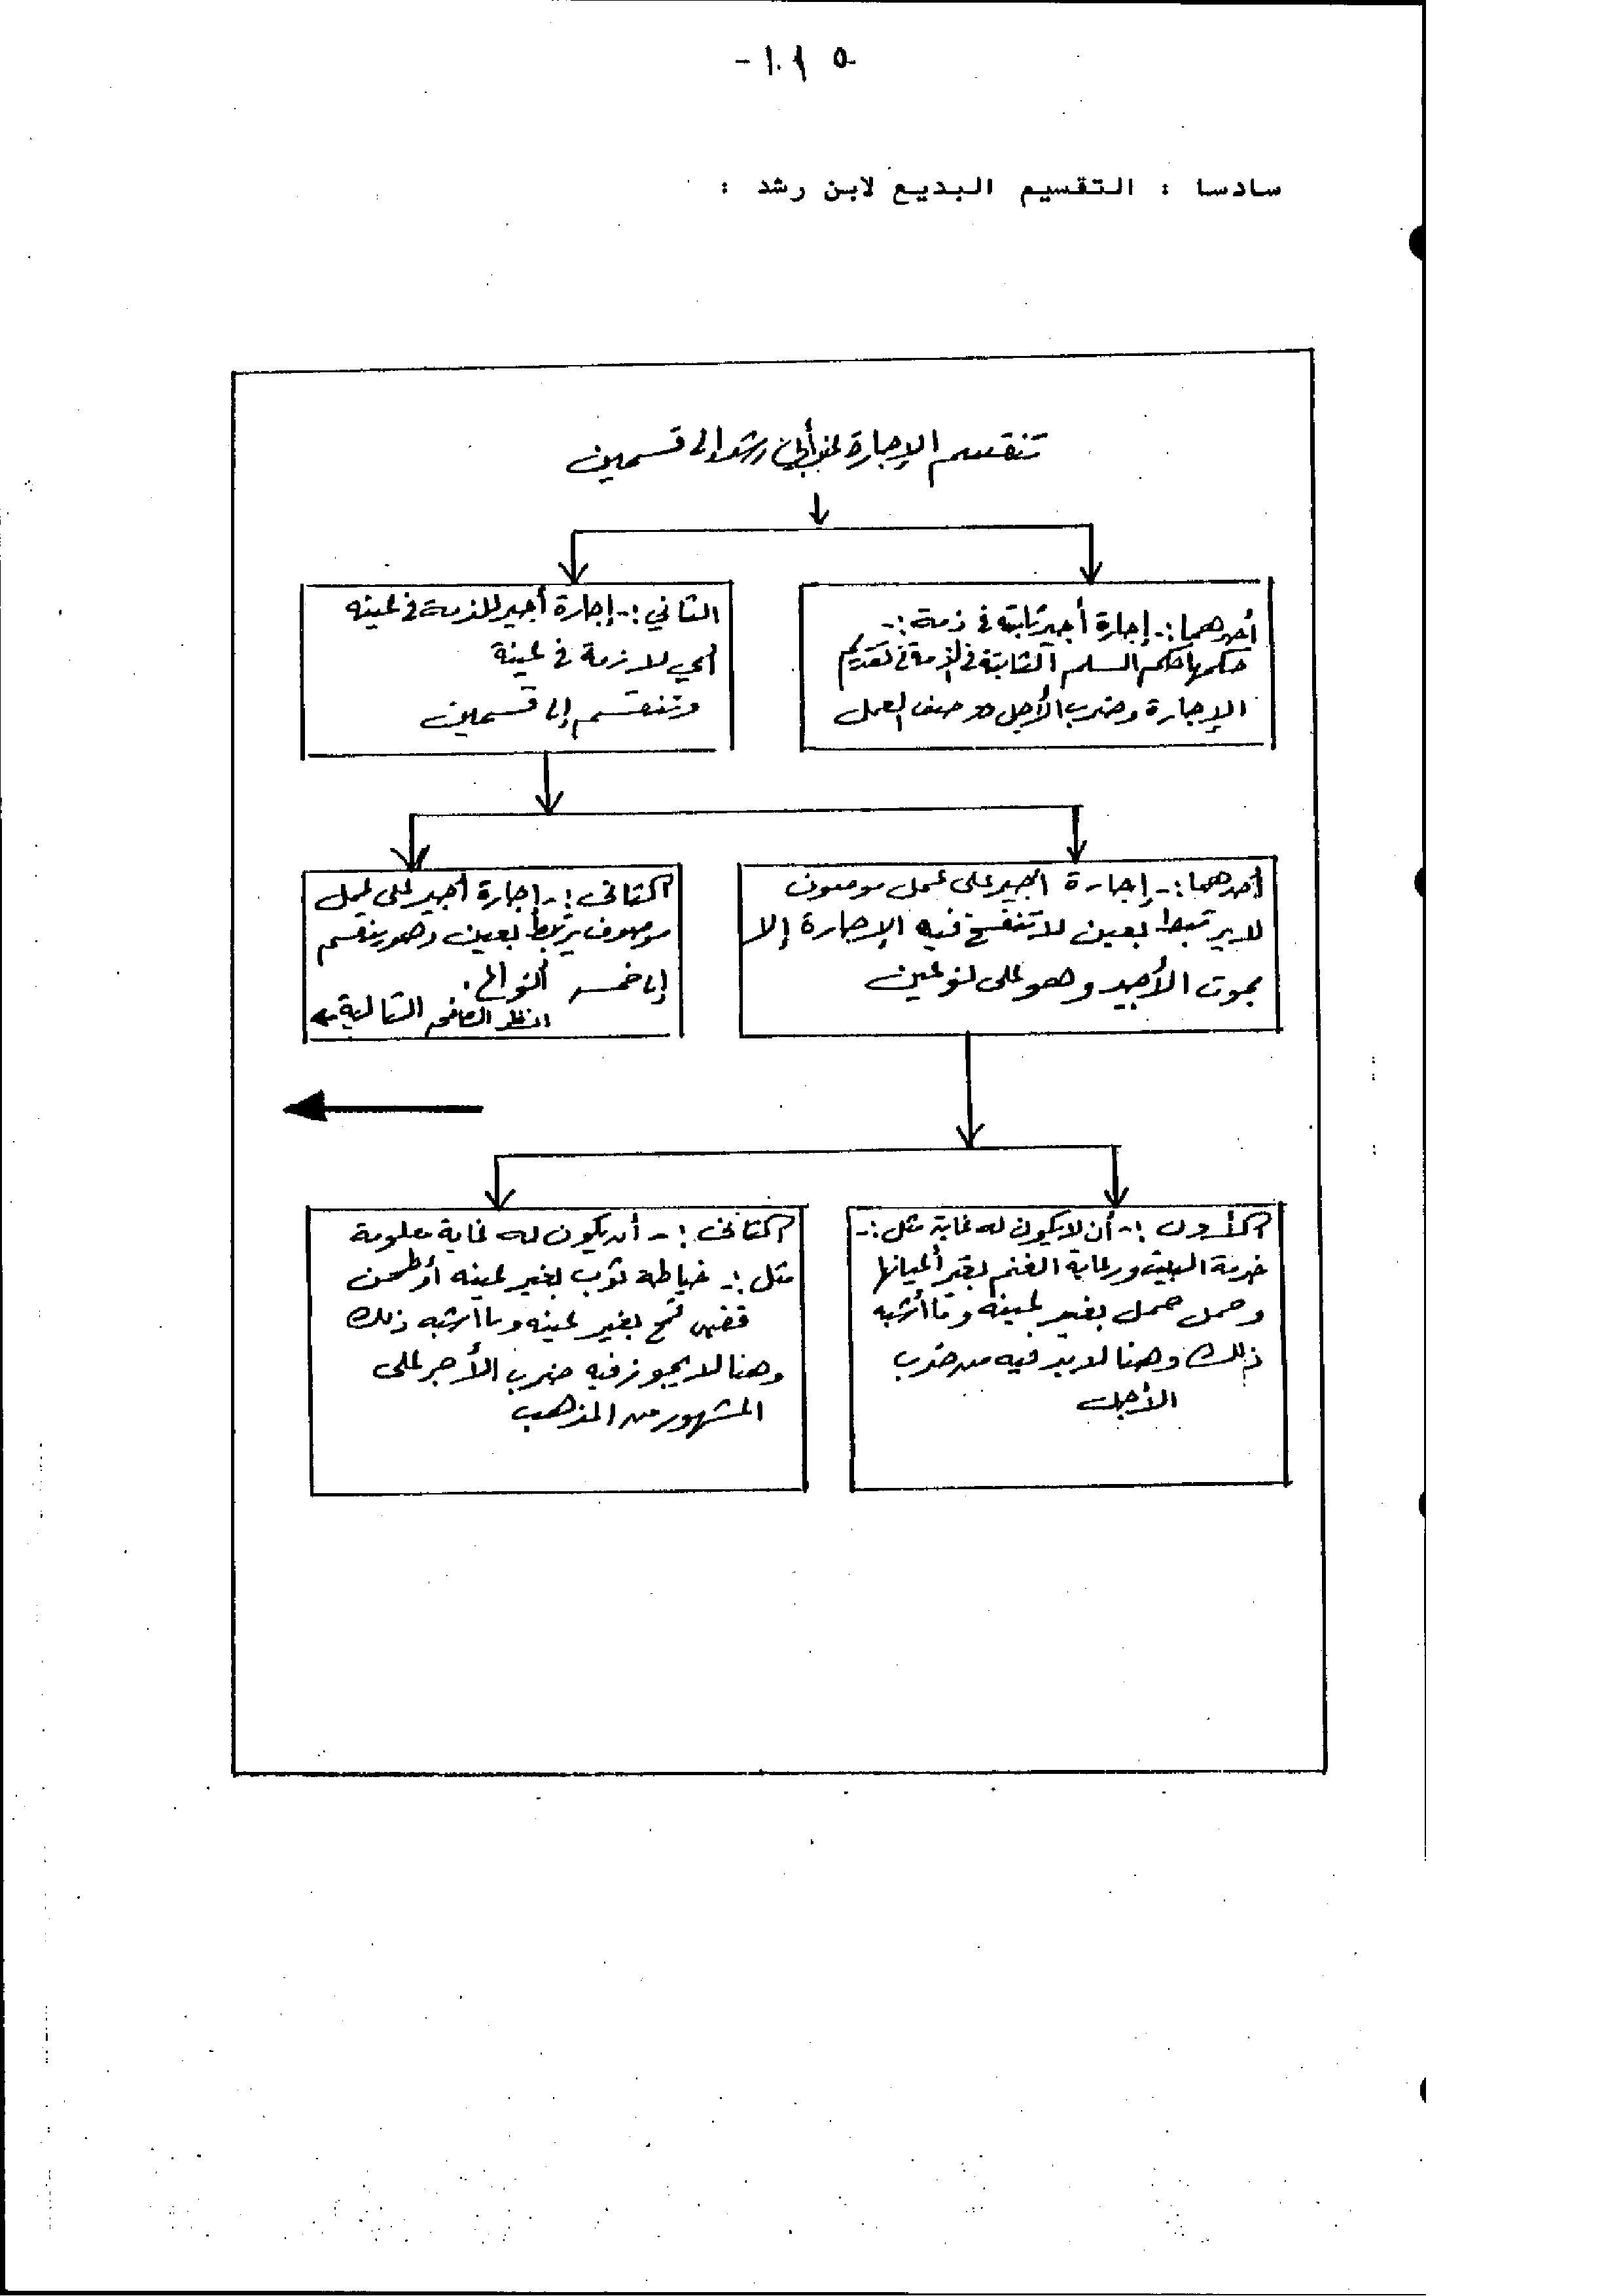 سادسا : التقسيم البديع لابن رشد :
تنقسم الإجارة عند ابن رشد إلى قسمين
أحدهما :- إجارة أجير ثابتة في ذمة :-
حكمها حكم السلم الثابتة في الذمة في تقديم
الإجارة وضرب الأجل ووصف العمل
الثاني :- إجارة أجير للذمة في عينه
أي لازمة في عينة
وتنقسم إلى قسمين
أحدهما :- إجارة أجير على عمل موصوف
لا يرتبط بعين لا تنفسخ فيه الإجارة إلا
بموت الأجير وهو على نوعين
الثاني :- إجارة أجير على عمل
موصوف يرتبط بعين وهو ينقسم
إلى خمسه أنواع .
انظر الصفحه التالية
الأول :- أن لا يكون له غاية مثل :-
خدمة البيت ورعاية الغنم بغير أعيانها
وحمل حمل بغير عينه وما أشبه
ذلك وهنا لا بد فيه من ضرب
الأجل
الثاني :- أن يكون له غاية معلومة
مثل :- خياطة ثوب بغير عينه أو طحن
قمح بغير عينه وما أشبه ذلك
وهنا لا يجوز فيه ضرب الأجر على
المشهور من المذهب